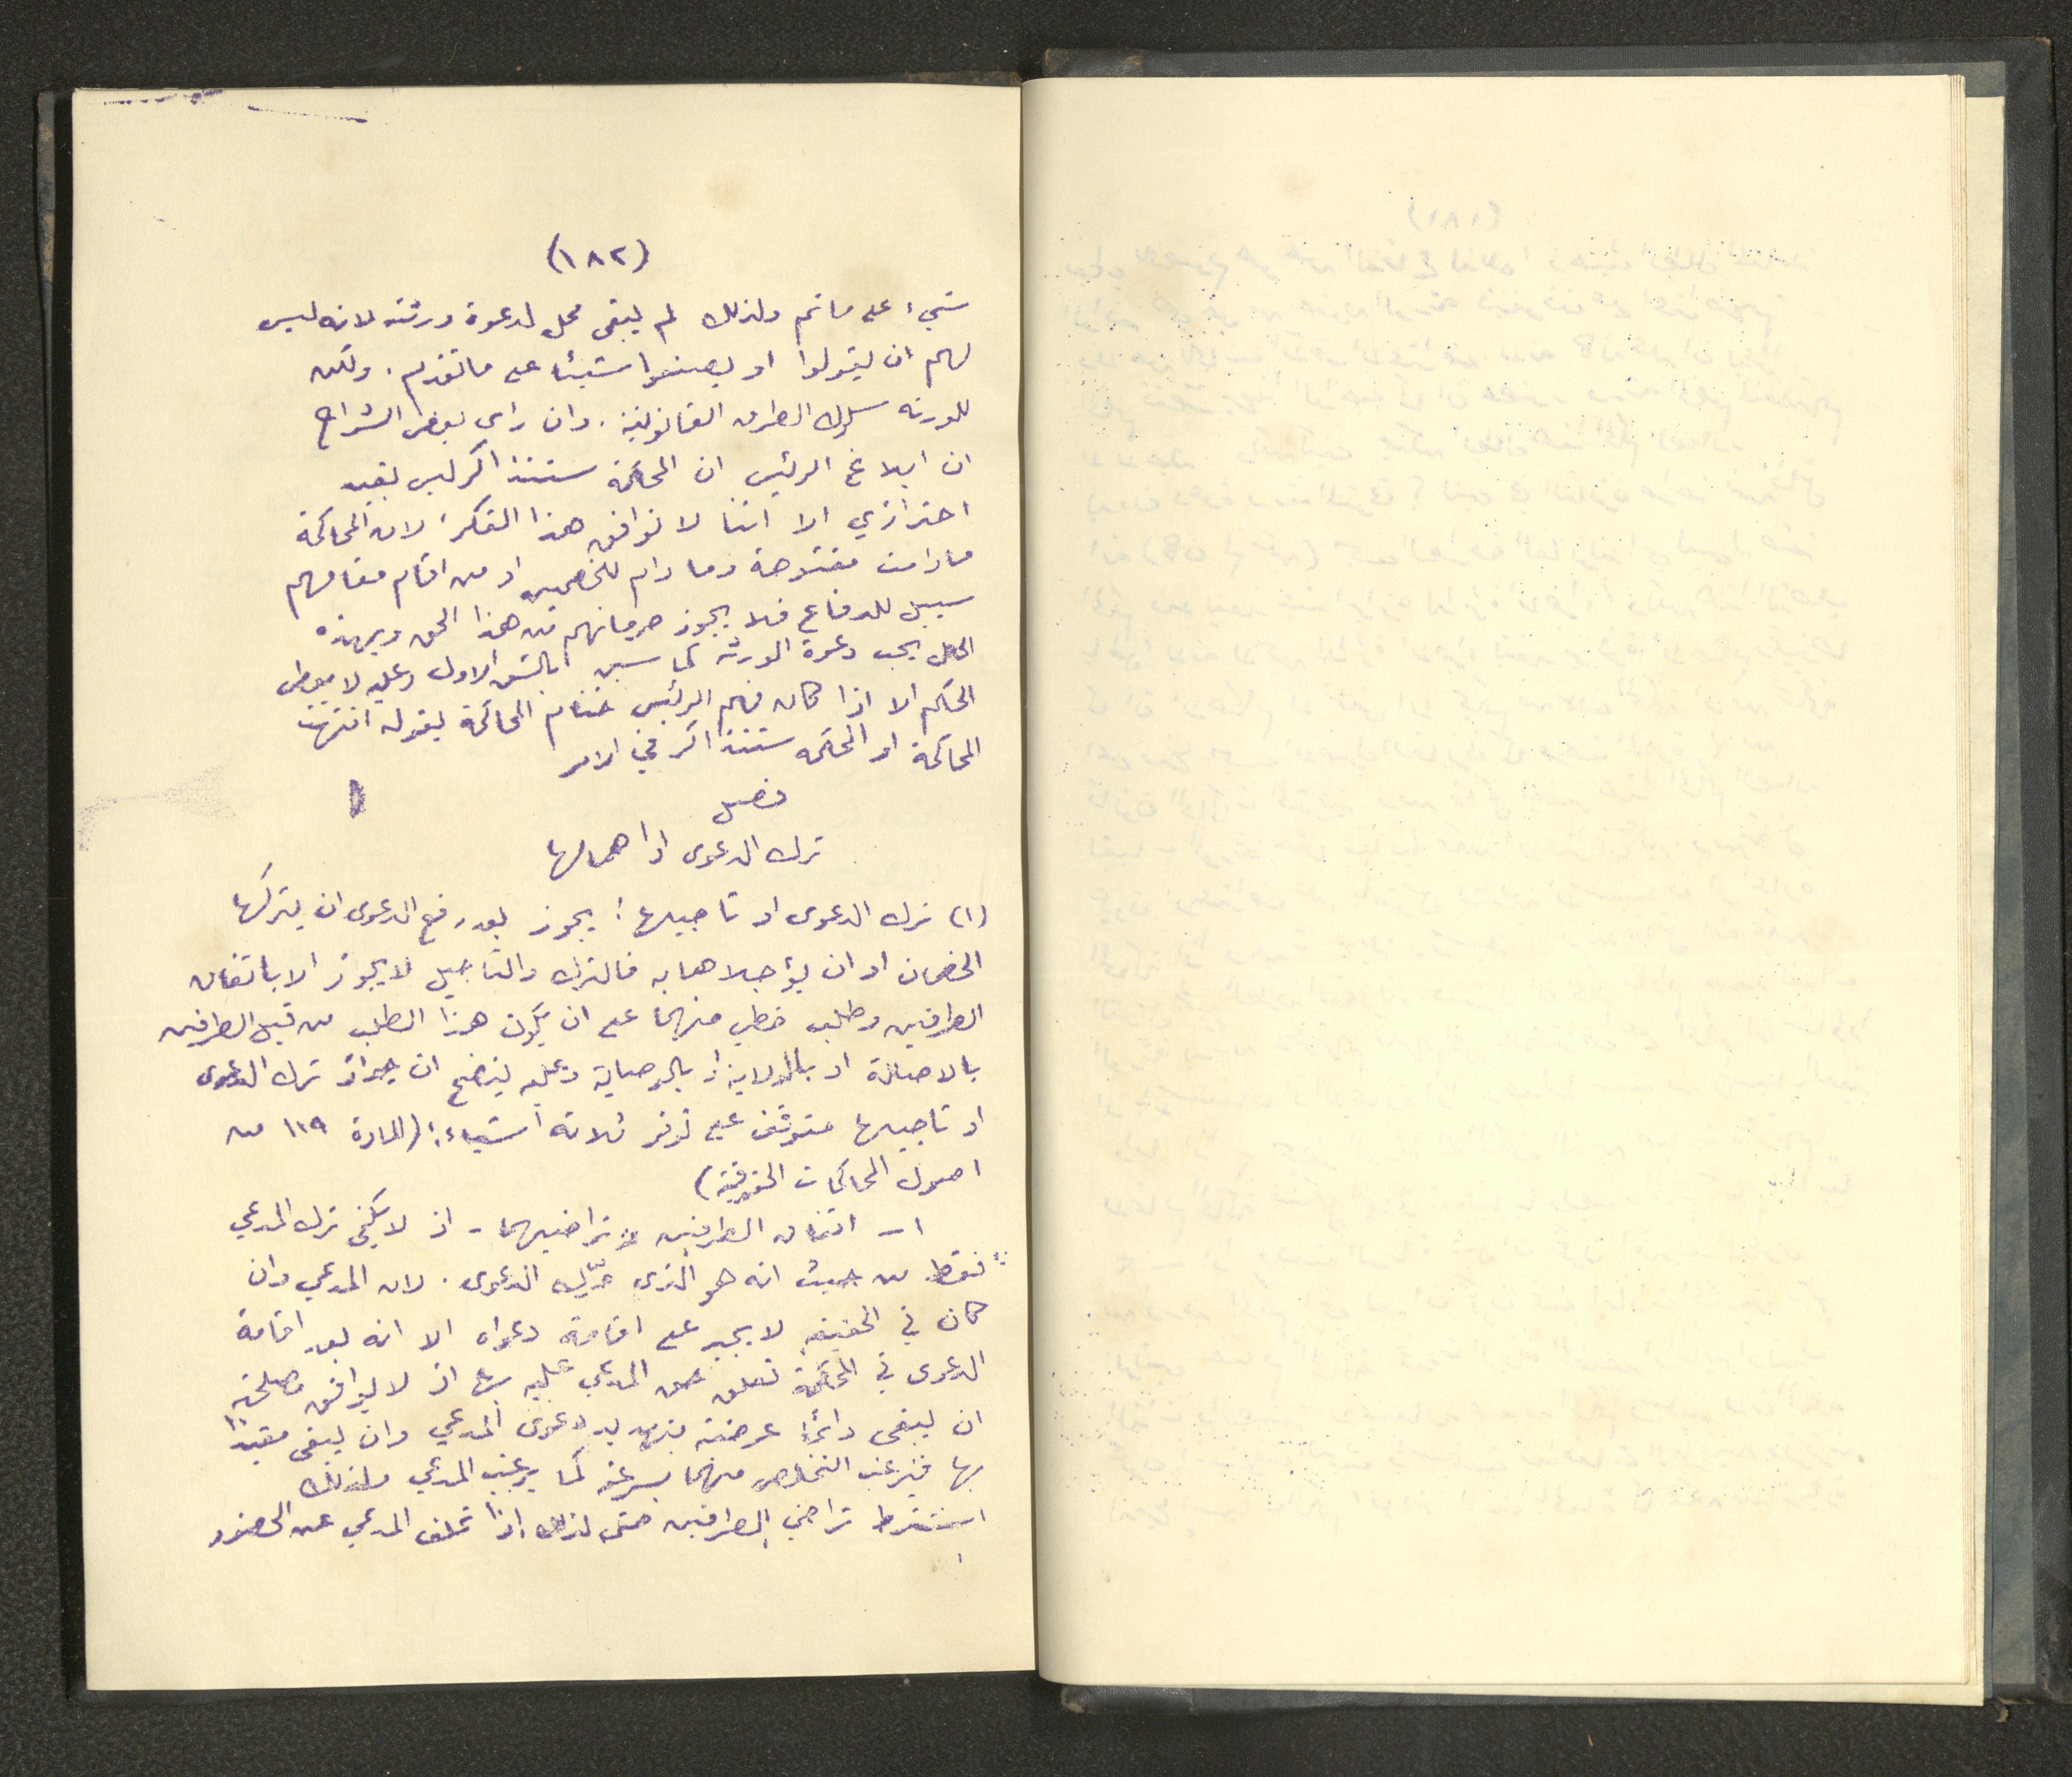 (١٨٢)
شيء على ما تم ولذلك لم يبقى محل لدعوة ورثته لانه ليس
لهم ان يقولوا او يضيفوا شيئا على ما تقدم . ولكن
للورثه سلوك الطرق القانونية . وان راى بعض الشراح
ان ابلاغ الرئيس ان المحكمة ستتذاكر ليس بقيد
احترازي الا اننا لا نوافق هذا الفكر لان المحاكمة
ما دامت مفتوحة وما دام للخصمين او من اقام مقامهم
سبيل للدفاع فلا يجوز حرمانهم من هذا الحق وبهذه
الحال يجب دعوة الورثة كما سبق بالشق الاول وعليه لا يعطى
الحكم الا اذا كان فهم الرئيس ختام المحاكمة بقوله انتهت
المحاكمة او المحكمه ستتذاكر في الامر
فصل
ترك الدعوى او اهمالها
(١) ترك الدعوى او تاجيلها : يجوز بعد رفع الدعوى ان يتركها
الخصمان او ان يؤجلاها به فالترك والتاجيل لا يجوز الا باتفاق
الطرفين وطلب خطي منهما على ان يكون هذا الطلب من قبل الطرفين
بالاصالة او بالولاية او بالوصاية وعليه يتضح ان جواز ترك الدعوى
او تاجيلها متوقف على توفر ثلاثة اشياء : (المادة ١١٩ من
اصول المحاكمات الحقوقية)
١ - اتفاق الطرفين وتراضيهما - اذ لا يكفي ترك المدعي
فقط من حيث انه هو الذى حرّك الدعوى . لان المدعي وان
كان في الحقيقه لا يجبر على اقامة دعواه الا انه بعد اقامة
الدعوى في المحكمة تعلق حق المدعي عليه بها اذ لا يوافق مصلحته
ان يبقى دائما عرضة بتهديد دعوى المدعي وان يبقى مقيدا
بها فيرغب التخلص منها بسرعة كما يرغب المدعي ولذلك
اشترط تراضي الطرفين حتى لذلك اذا تخلف المدعي عن الحضور